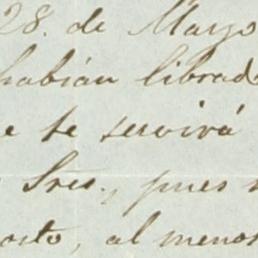 28. de Marzo
habían librad
e se servirá
Sres., pues
osto, al menos